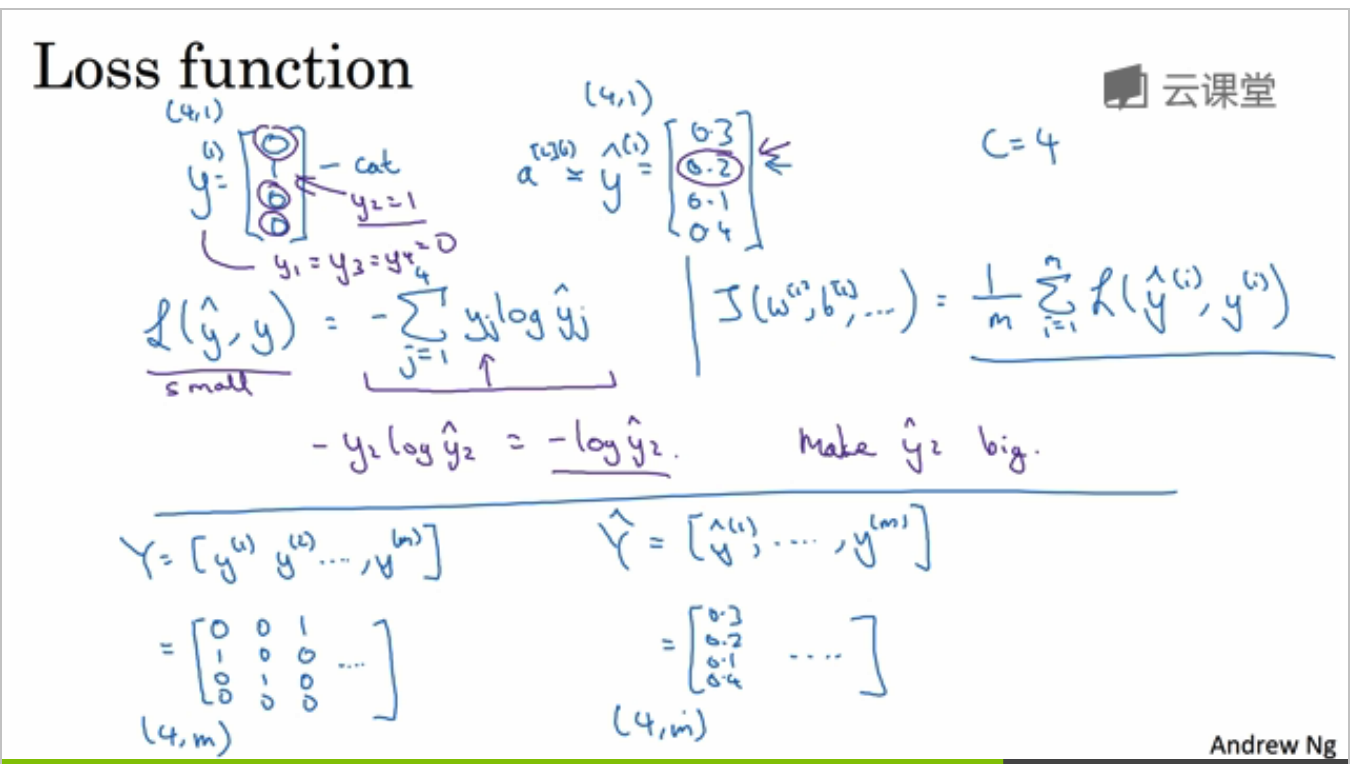 Loss function
云课堂
(4,1)
y^(i) = [0 1 0 0] - cat
y₂=1
y₁ = y₃ = y₄ = 0
(4,1)
ŷ^(i) = [0.3 0.2 0.1 0.4]
C=4
L(ŷ, y) = - Σ_{j=1}^{4} yⱼ log ŷⱼ
small
J(w^[1], b^[1], ...) = 1/m Σ_{i=1}^{m} L(ŷ^(i), y^(i))
- y₂ log ŷ₂ = - log ŷ₂. Make ŷ₂ big.
Y = [y^(1) y^(2) ..., y^(m)]
= [0 0 1
1 0 0 ....
0 1 0
0 0 0]
(4,m)
Ŷ = [ŷ^(1), ...., y^(m)]
= [0.3
0.2 ....
0.1
0.4]
(4,m)
Andrew Ng